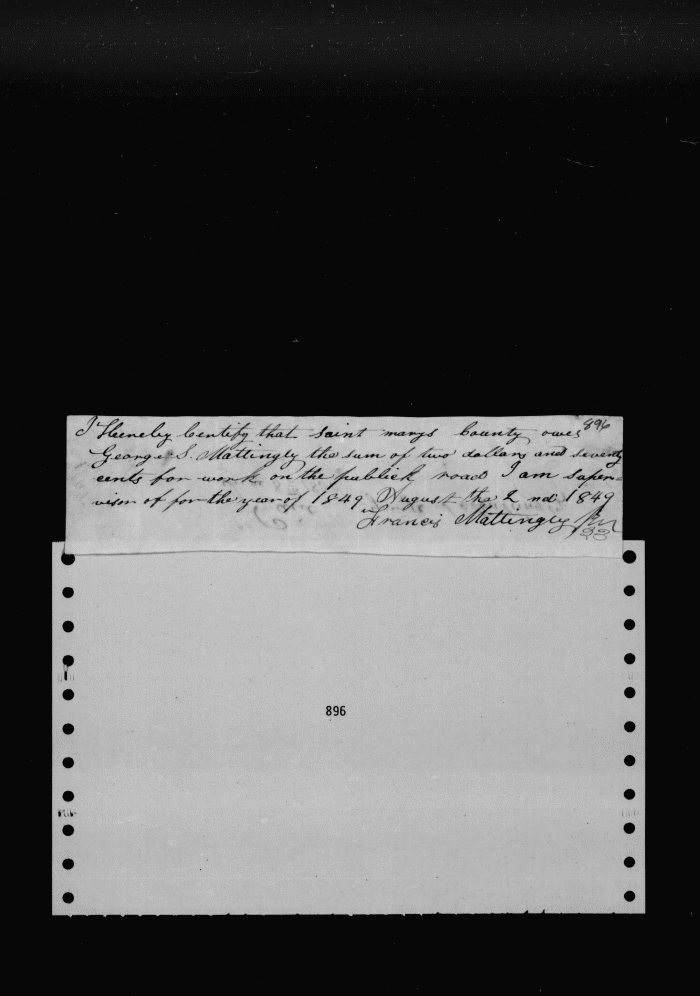 896
I Hereby Certify that saint marys County owes
George S. Mattingly the sum of two dollars and seventy
cents for work on the publick road I am super=
visor of for the year of 1849 August the 2 nd 1849
Francis Mattingly
896